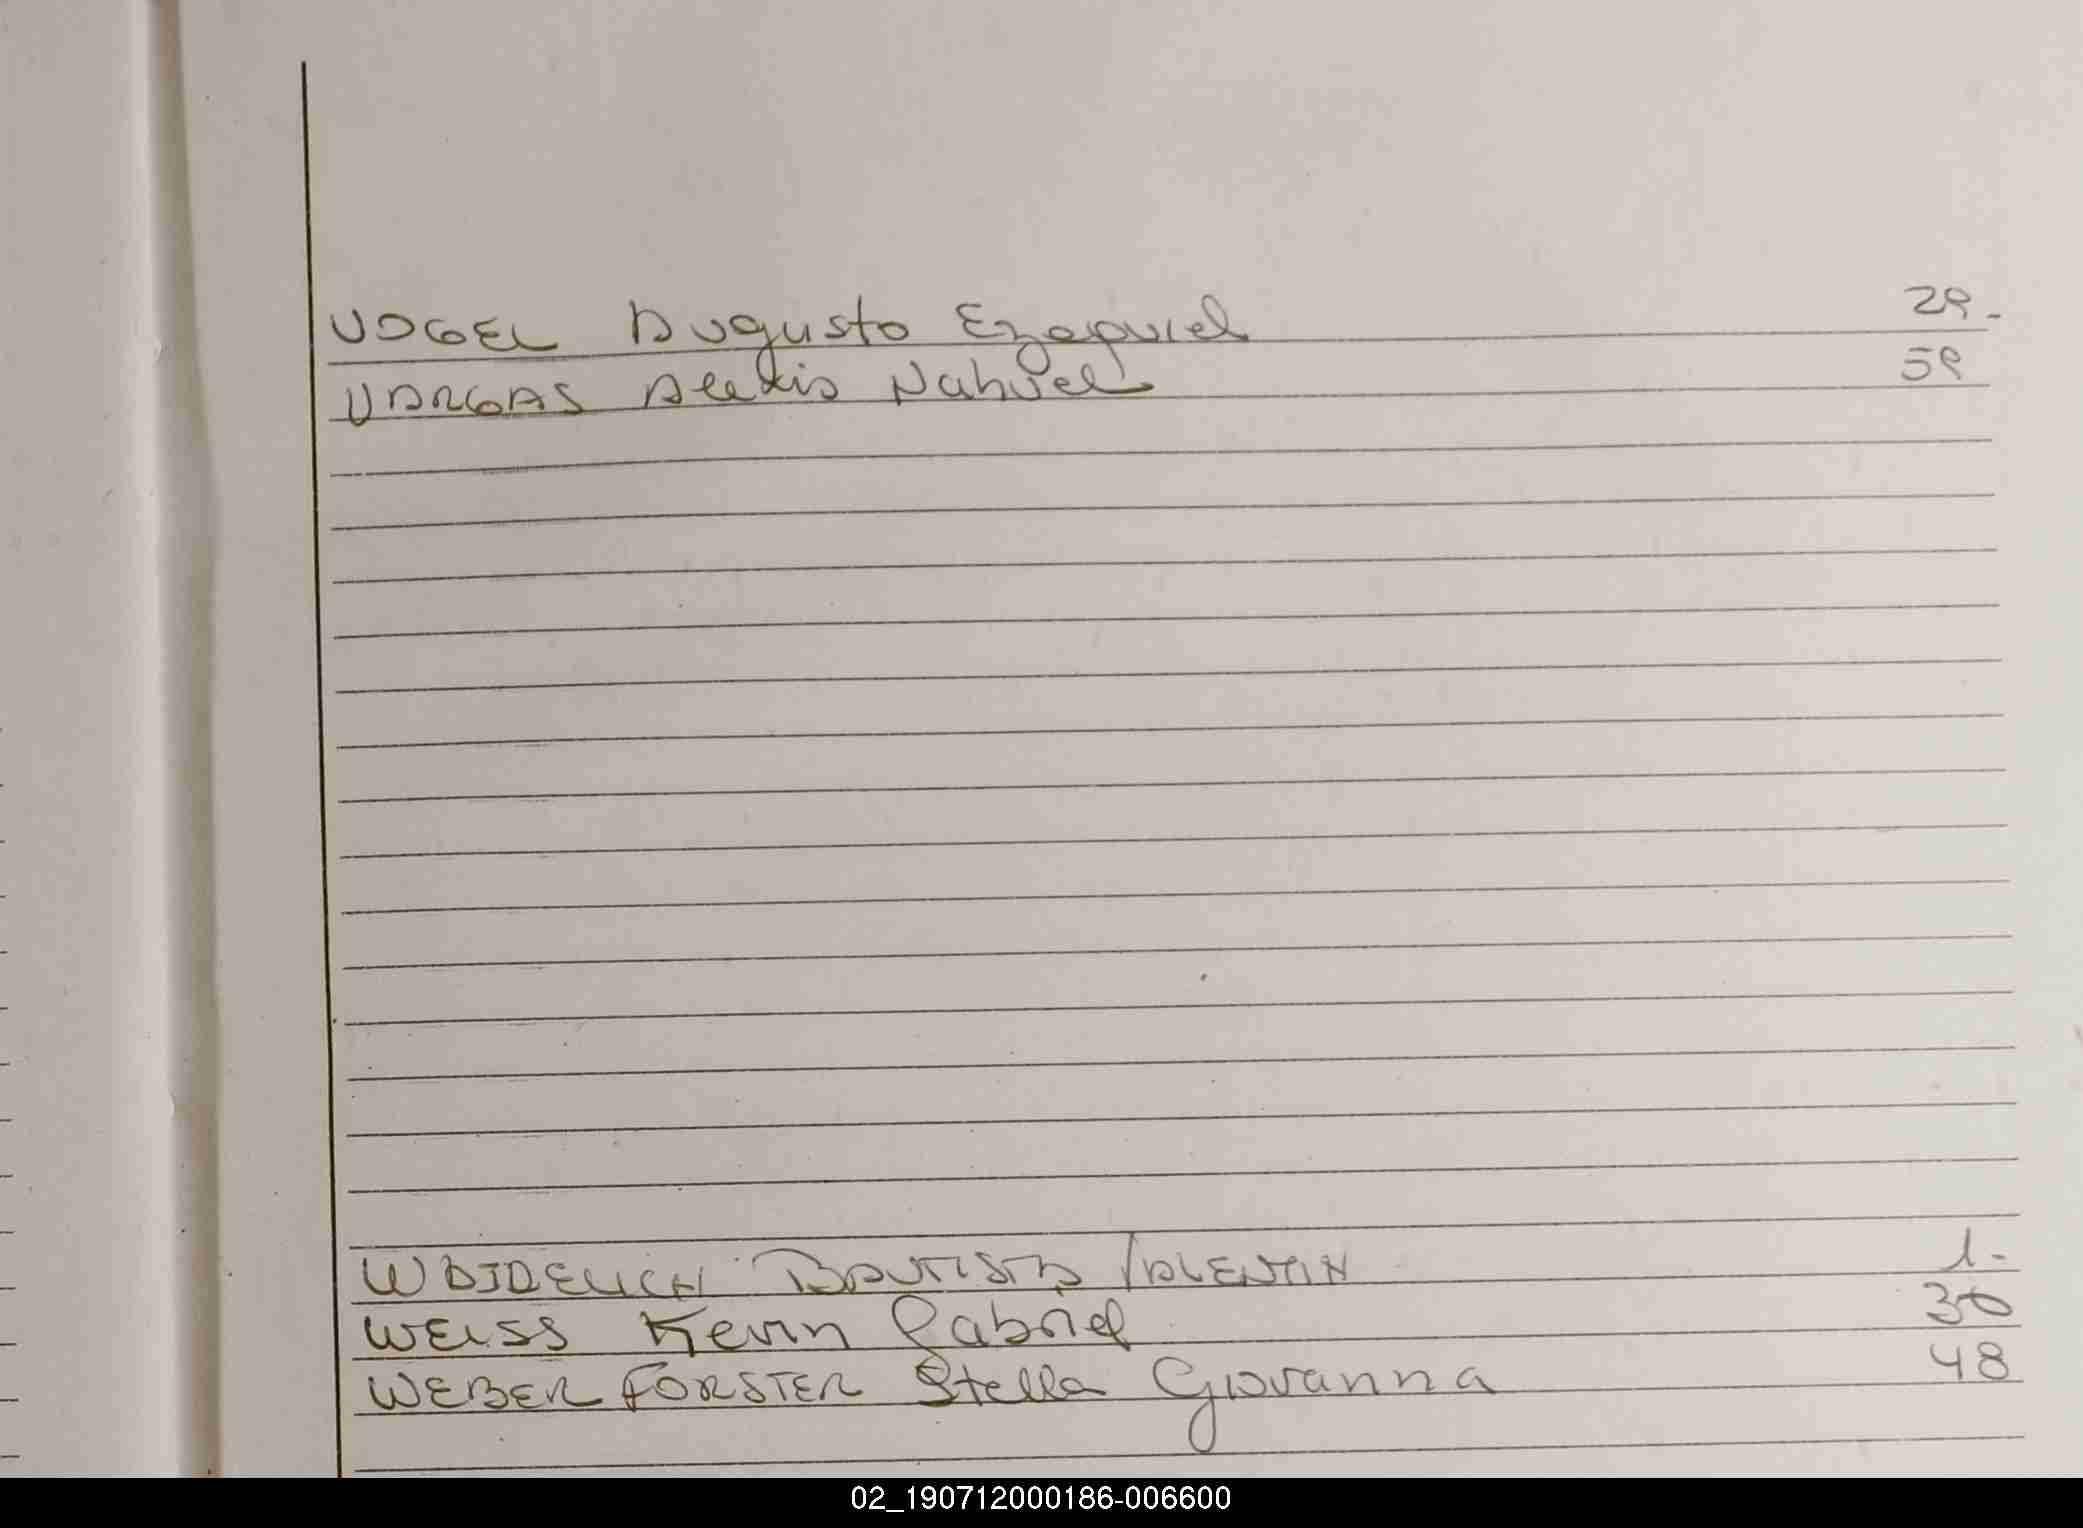 VOGEL Augusto Ezequiel 29.
VARGAS Alexis Nahuel 59
BAUTISTA VALENTIN 1.
WEISS Kevin Gabriel 30
WEBER FORSTER Stella Giovanna 48
02_190712000186-006600